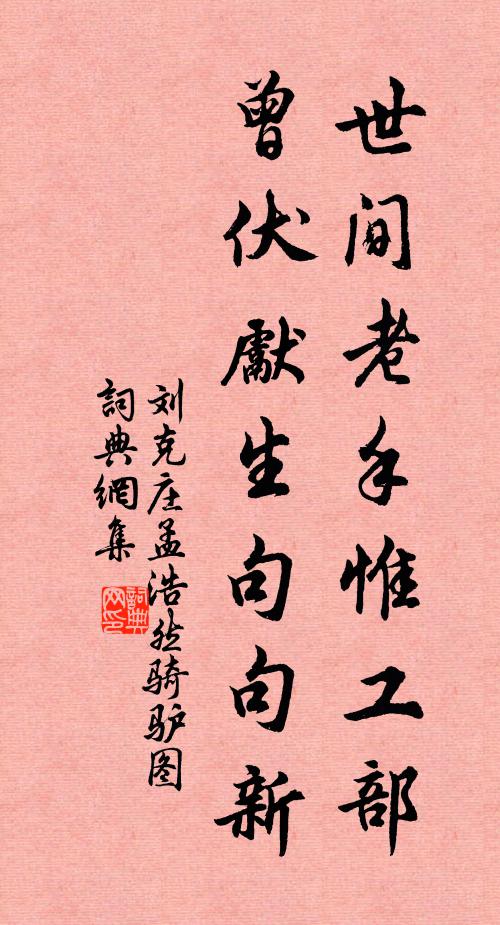 世間老手惟工部
曾伏獻生句句新
刘克庄孟浩然骑驴图
詞典網集
詞典
网印